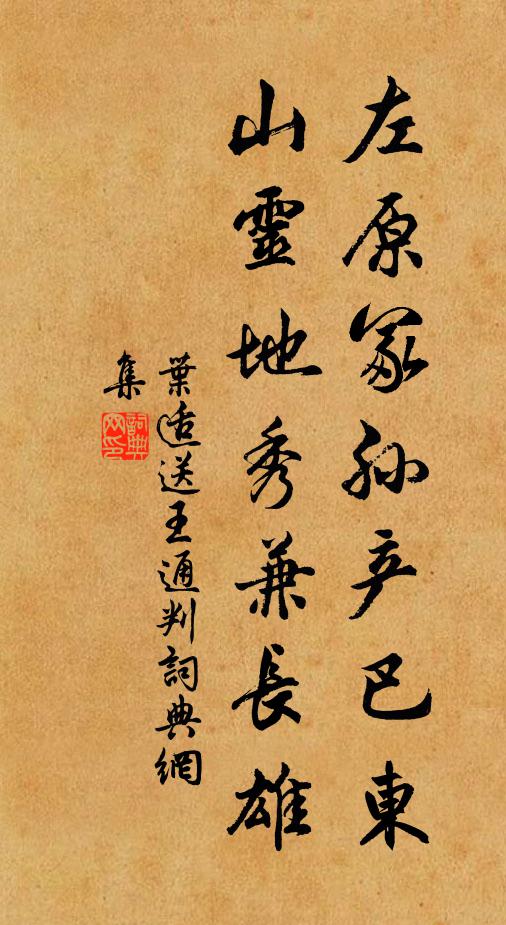 左原冢孙产巴東
山靈地秀兼長雄
葉适送王通判詞典網
集
詞典
网印